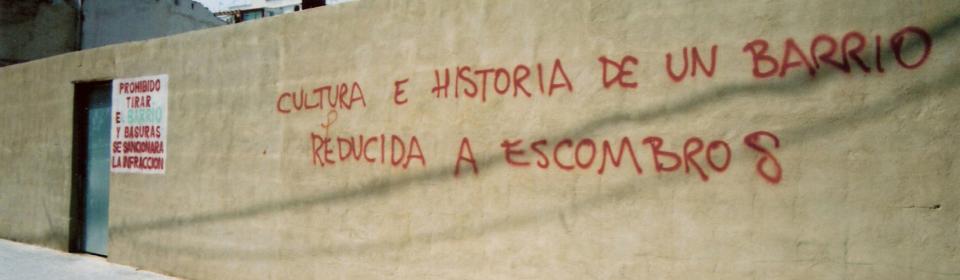 PROHIBIDO
TIRAR
E BARRIO
Y BASURAS
SE SANCIONARA
LA INFRACCION
CULTURA E HISTORIA DE UN BARRIO
REDUCIDA A ESCOMBROS